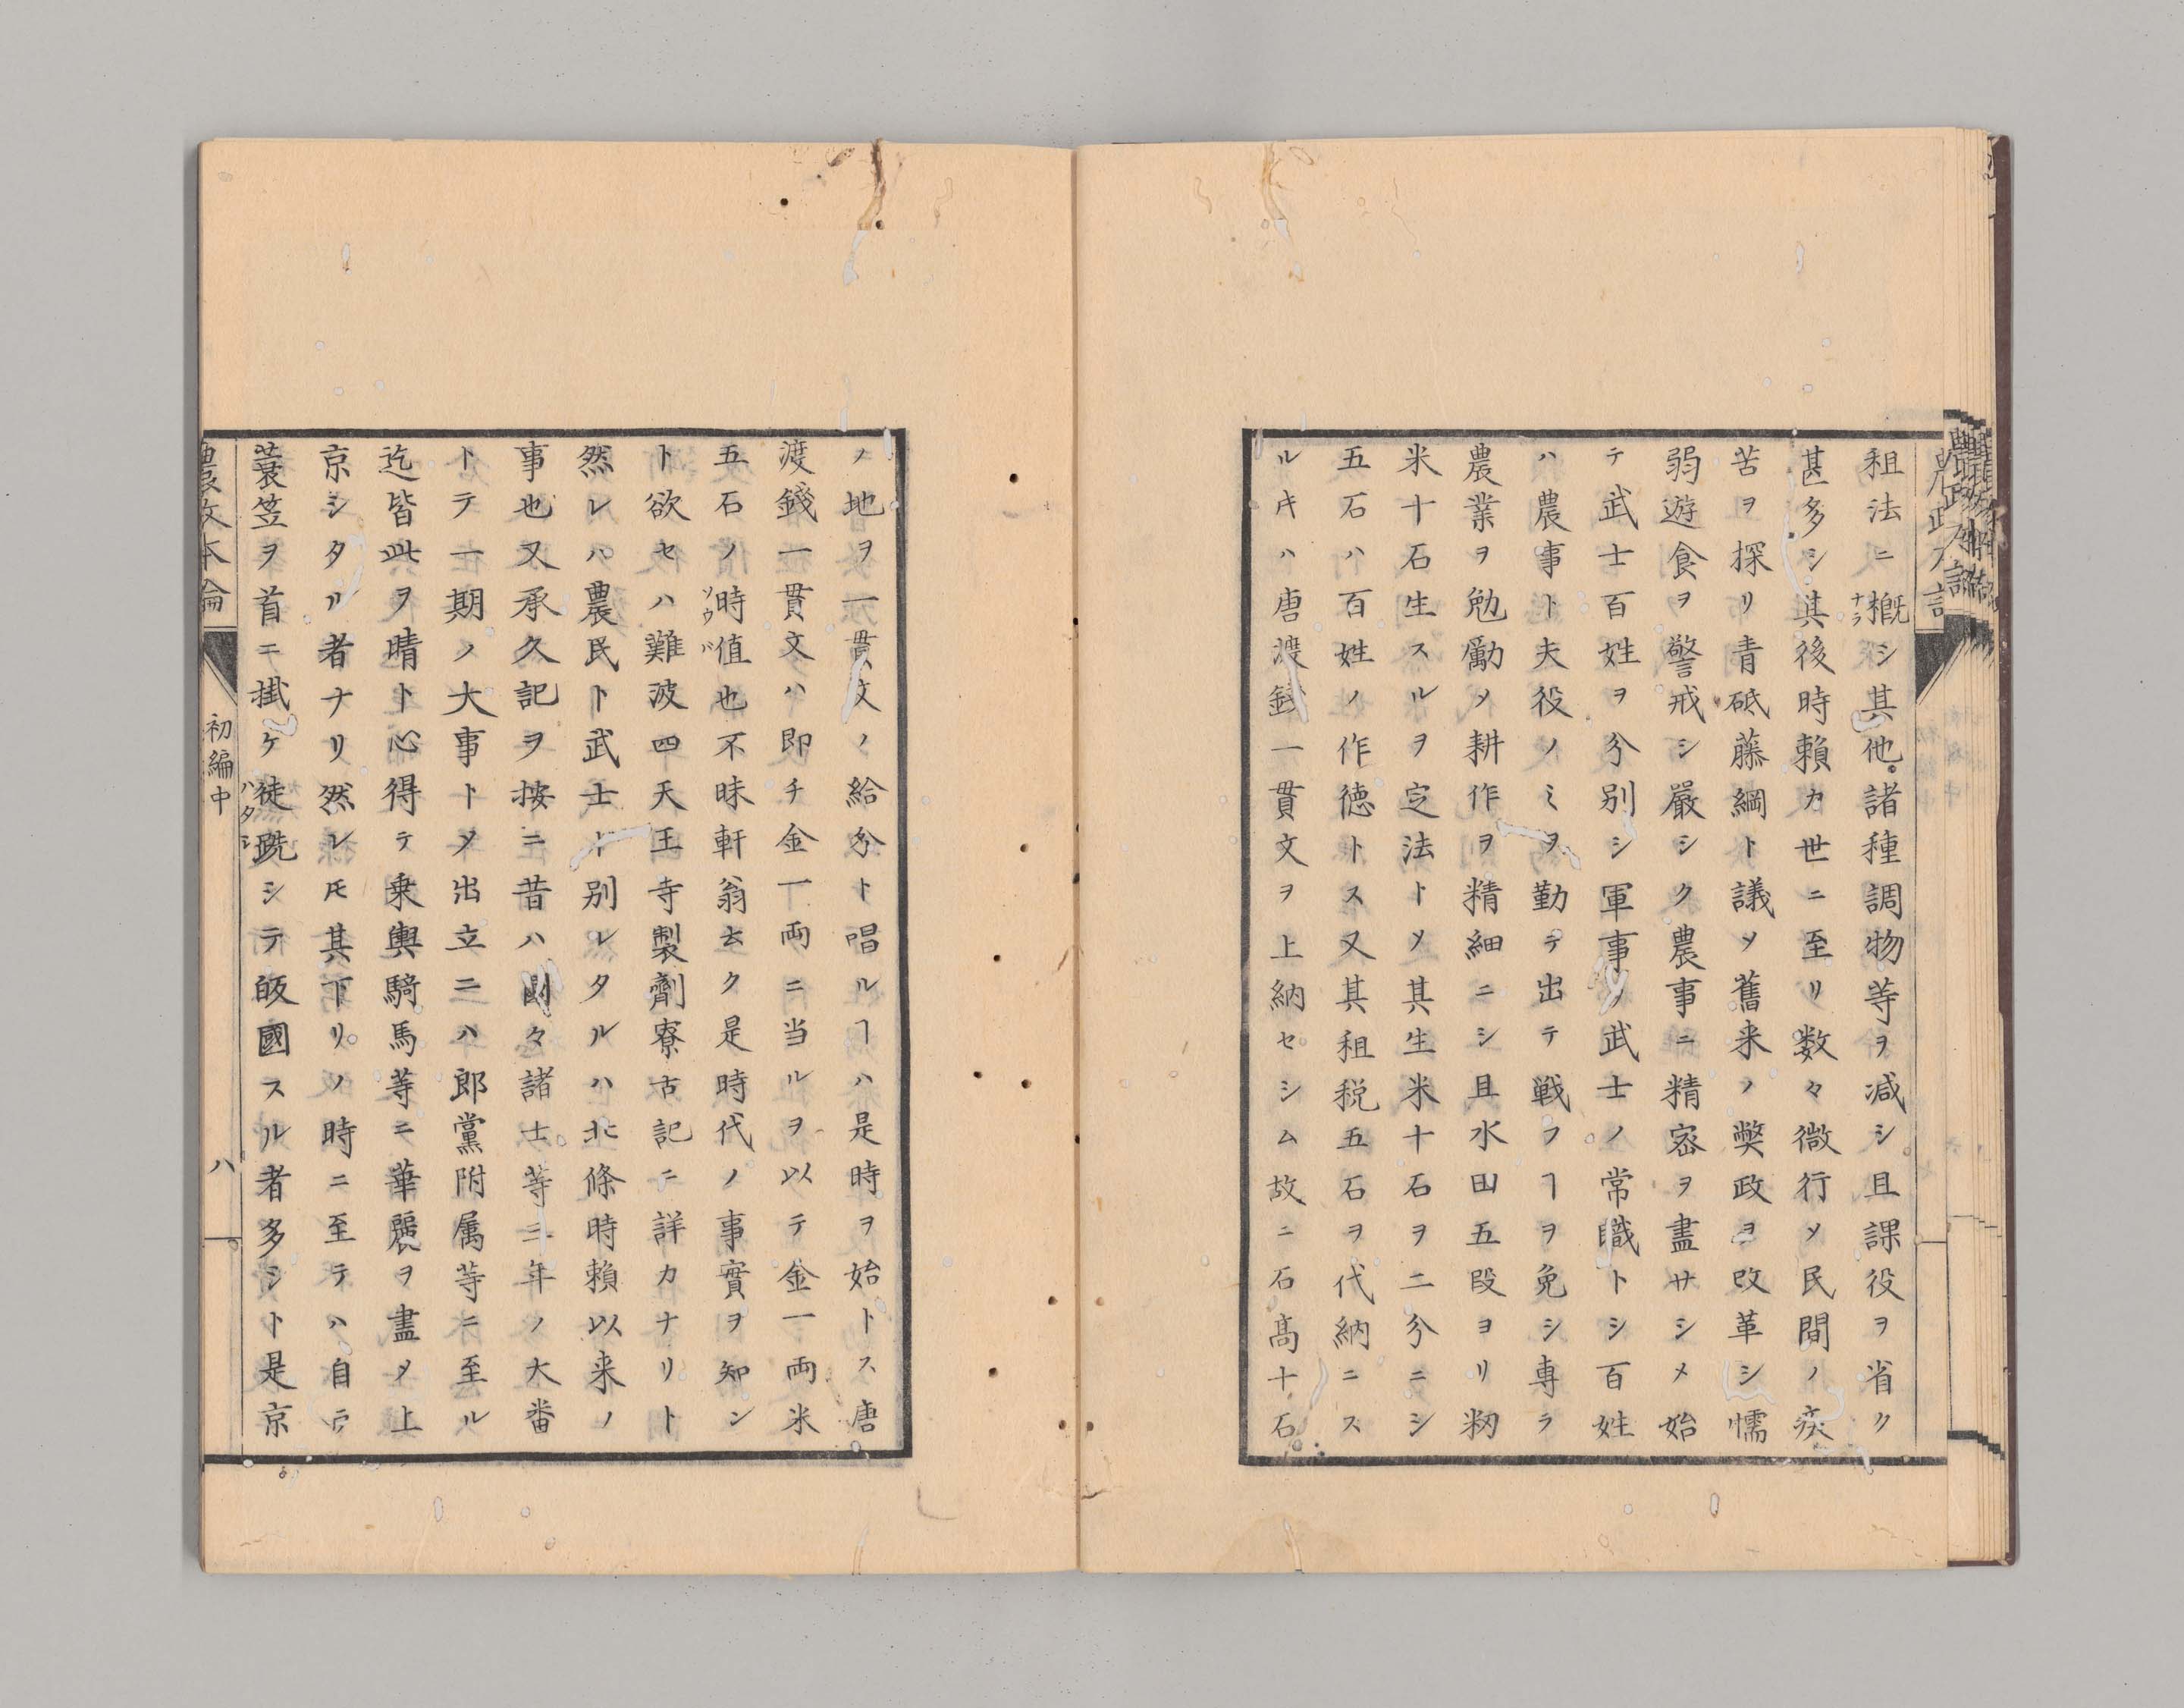 租法ニ摡シ其他諸種調物等ヲ減シ且課役ヲ省ク
ナラ
甚多シ其後時頼カ世ニ至リ数々微行〆民間ノ疾
苦ヲ探リ青砥藤綱ト議〆舊来ノ獘政ヲ改革シ懦
弱遊食ヲ警戒シ嚴シク農事ニ精宻ヲ盡サシメ始
テ武士百姓ヲ分别シ軍事ノ武士ノ常職トシ百姓
ハ農事ト夫役ノミヲ勤テ出テ戦フヿヲ免シ専ラ
農業ヲ勉勵〆耕作ヲ精細ニシ且水田五段ヨリ籾
米十石生スルヲ定法ト〆其生米十石ヲ二分ニシ
五石ハ百姓ノ作徳トス又其租税五石ヲ代納ニス
ルキハ唐渡錢一貫文ヲ上納セシム故ニ石髙十石
ノ地ヲ一貫文ノ給分ト唱ルヿハ是時ヲ始トス唐
渡錢一貫文ハ即チ金一両ニ当ルヲ以テ金一両米
五石ノ時値也不昧軒翁去ク是時代ノ事實ヲ知ン
ソウバ
ト欲セハ難波四天王寺製劑寮古記ニ詳カナリト
然レハ農民ト武士ト别レタルハ北條時頼以来ノ
事也又承久記ヲ按ニ昔ハ國々諸士等三年ノ大畨
トテ一期ノ大事ト〆出立ニハ郎黨附属等ニ至ル
迄皆此ヲ晴ト心得テ乗輿騎馬等ニ華麗ヲ盡〆上
京シタル者ナリ然レ𪜈其下リノ時ニ至テハ自ラ
蓑笠ヲ首ニ掛ケ徒跣シテ皈國スル者多シト是京
ハタシ
農政本論
初編中
八